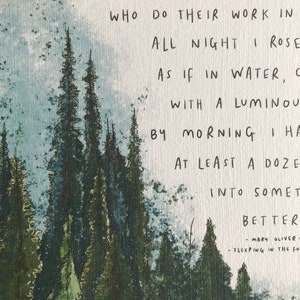 WHO DO THEIR WORK IN
ALL NIGHT I ROSE
AS IF IN WATER,
WITH A LUMINOU
BY MORNING I HA
AT LEAST A DOZE
INTO SOMET
BETTER
- MARY OLIVER
- SLEEPING IN THE FO